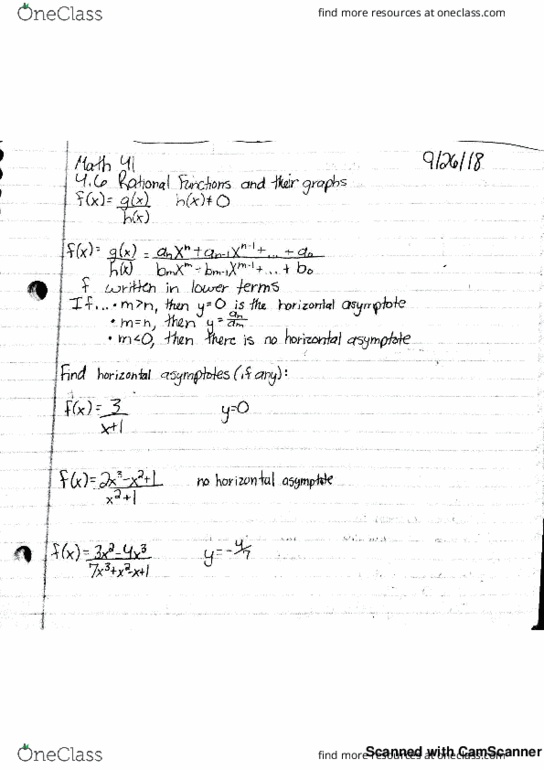 OneClass
find more resources at oneclass.com
Math 41
9/26/18
4.6 Rational Functions and their graphs
f(x)= g(x)/h(x) h(x)≠0
f(x)= g(x)/h(x) = (aₙxⁿ+aₙ₋₁xⁿ⁻¹+...+a₀)/(bₘxᵐ+bₘ₋₁xᵐ⁻¹+...+b₀)
f written in lower terms
If... • m>n, then y=0 is the horizontal asymptote
• m=n, then y=aₙ/aₘ
• m<0, then there is no horizontal asymptote
Find horizontal asymptotes (if any):
f(x)= 3/(x+1) y=0
f(x)= (2x³-x²+1)/(x²+1) no horizontal asymptote
f(x)= (3x²-4x³)/(7x³+x²-x+1) y=-4/7
OneClass
find more resources at oneclass.com
Scanned with CamScanner